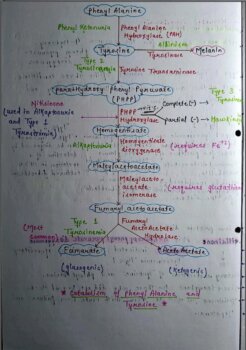 Phenyl Alanine
Phenyl Ketonuria
Phenyl Alanine
Hydroxylase (PAH)
Albinism
Tyrosine
Tyrosinase
Melanin
Type 2
Tyrosinemia
Tyrosine Transaminase
Type 3
ParaHydroxy phenyl Pyruvate
(PHPP)
Nitisinone
(used in AlKaptonuria
and Type 1
PHPP
Hydroxylase
Complete(-)
partial (-)
Homogentisate
AlKaptonuria
Homogentisate
dioxygenase
(requires Fe+2)
Maleylacetoacetate
Maleylaceto
acetate
isomerase
(requires glutathione
Fumaryl acetoacetate
Type 1
Tyrosinemia
(Most
Fumaryl
AcetoAcetate
Hydrolase
Fumarate
AcetoAcetate
(glucogenic)
(Ketogenic)
* Catabolism of Phenyl Alanine and
Tyrosine *